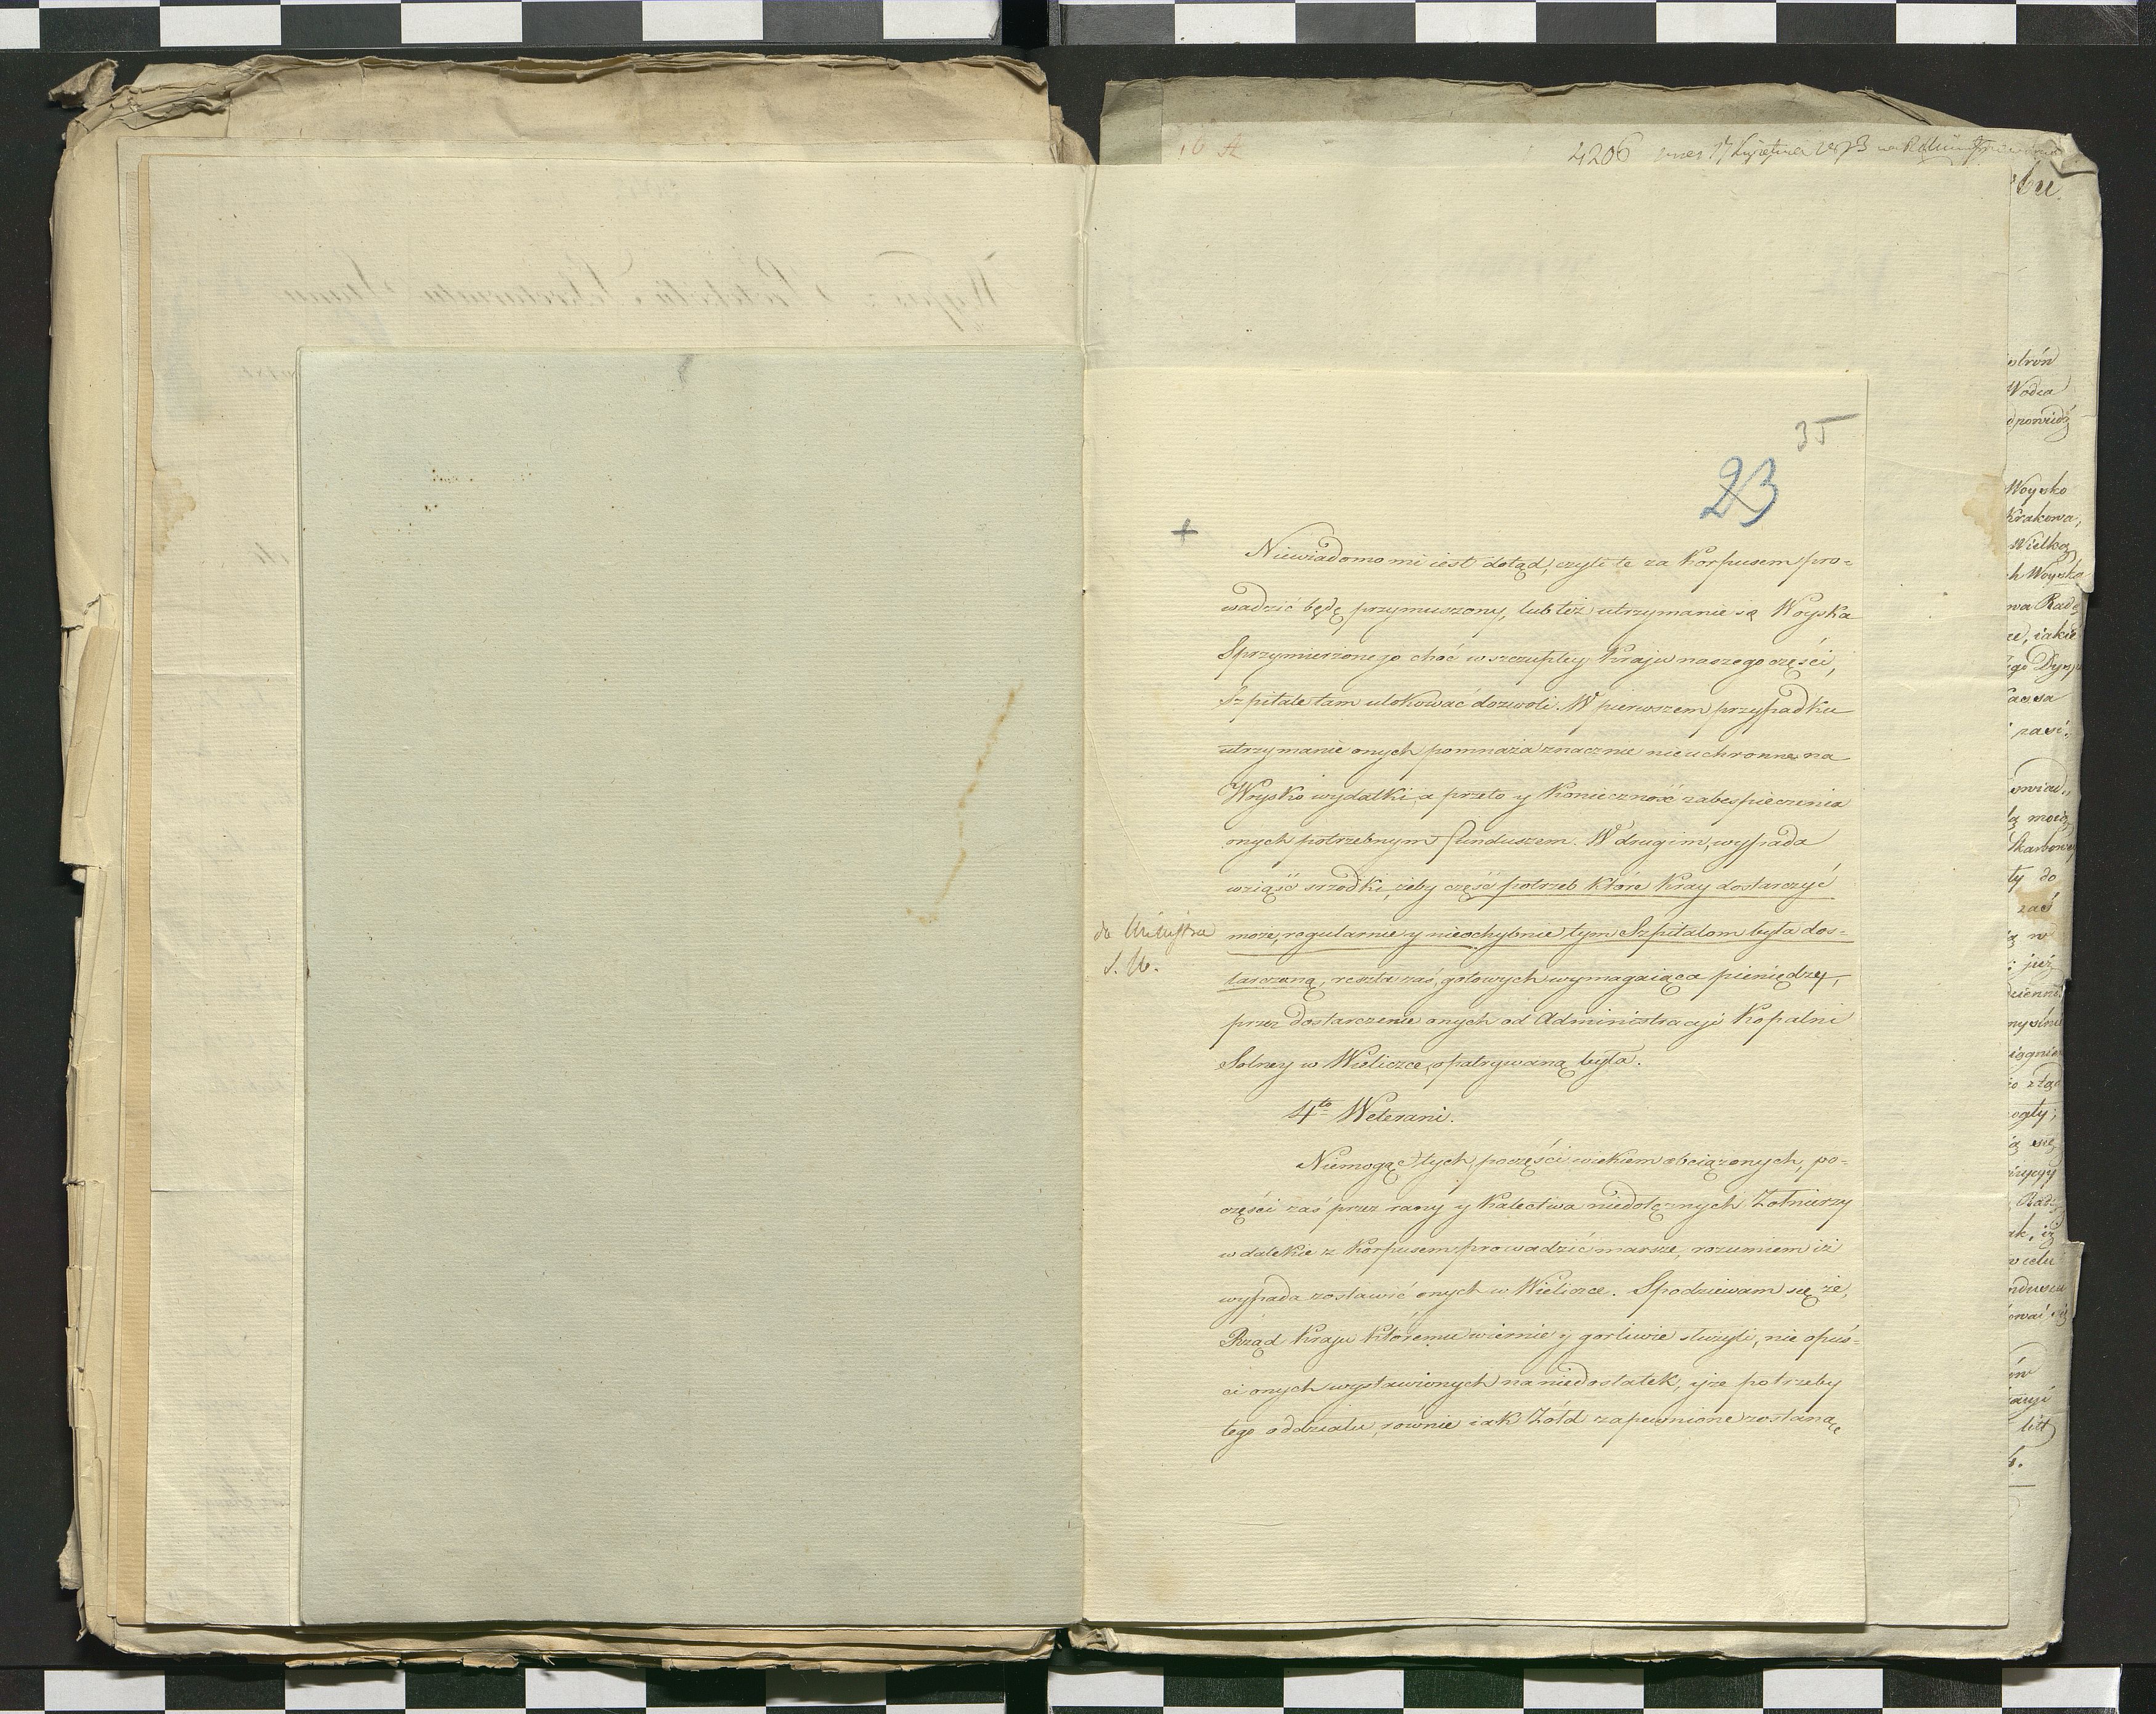 4206
35
23
+
Niewiadomo mi iest dotąd, czyli te za Korpusem pro-
wadzić będę przymuszony, lub też utrzymanie się Woyska
Sprzymierzonego choć w szczupłey Kraju naszego części,
Szpitale tam ulokować dozwoli. W pierwszem przypadku
utrzymanie onych pomnaża znacznie nieuchronne na
Woysko wydatki, a przeto y Konieczność zabespieczenia
onych potrzebnym funduszem. W drugim, wypada
wziąść srzodki, żeby część potrzeb które Kray dostarczyć
może, regularnie y nieochybnie tym Szpitalom była dos-
tarczoną, reszta zaś, gotowych wymagaiąca pieniędzy,
przez dostarczenie onych od Administracyi Kopalni
Solney w Wieliczce, opatrywaną była.
do Ministra
S. W.
4to Weterani.
Niemogąc tych, poczęści wiekiem obciążonych, po-
części zaś przez rany y Kalectwa niedołężnych Żołnierzy
w dalekie z Korpusem prowadzić marsze, rozumiem iż
wypada zostawić onych w Wieliczce. Spodziewam się że,
Rząd Kraju któremu wiernie y gorliwie służyli, nie opuś-
ci onych wystawionych na niedostatek, y że potrzeby
tego oddziału, równie iak Żołd zapewnione zostaną
bu
stron
Wodza
Woysko
Krakowa,
Wielko
ch Woysko
wa Radę
ze, iakie
ty do
zać
już
ogły;